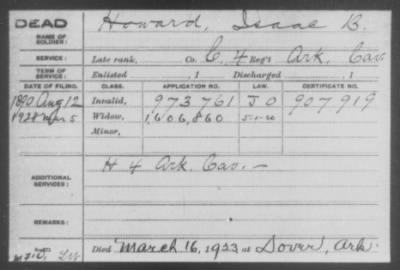 DEAD
NAME OF SOLDIER: Howard, Isaac B.
SERVICE: Late rank, Co. C, 4 Reg't Ark. Cav.
TERM OF SERVICE: Enlisted , 1 Discharged , 1
DATE OF FILING. CLASS. APPLICATION NO. LAW. CERTIFICATE NO.
1890 Aug 12 Invalid, 973761 J O 907919
1928 Mar 5 Widow, 1,606,860 5-1-20
Minor,
ADDITIONAL SERVICES: H 4 Ark. Cav. —
REMARKS:
Died March 16, 1923 at Dover, Ark.